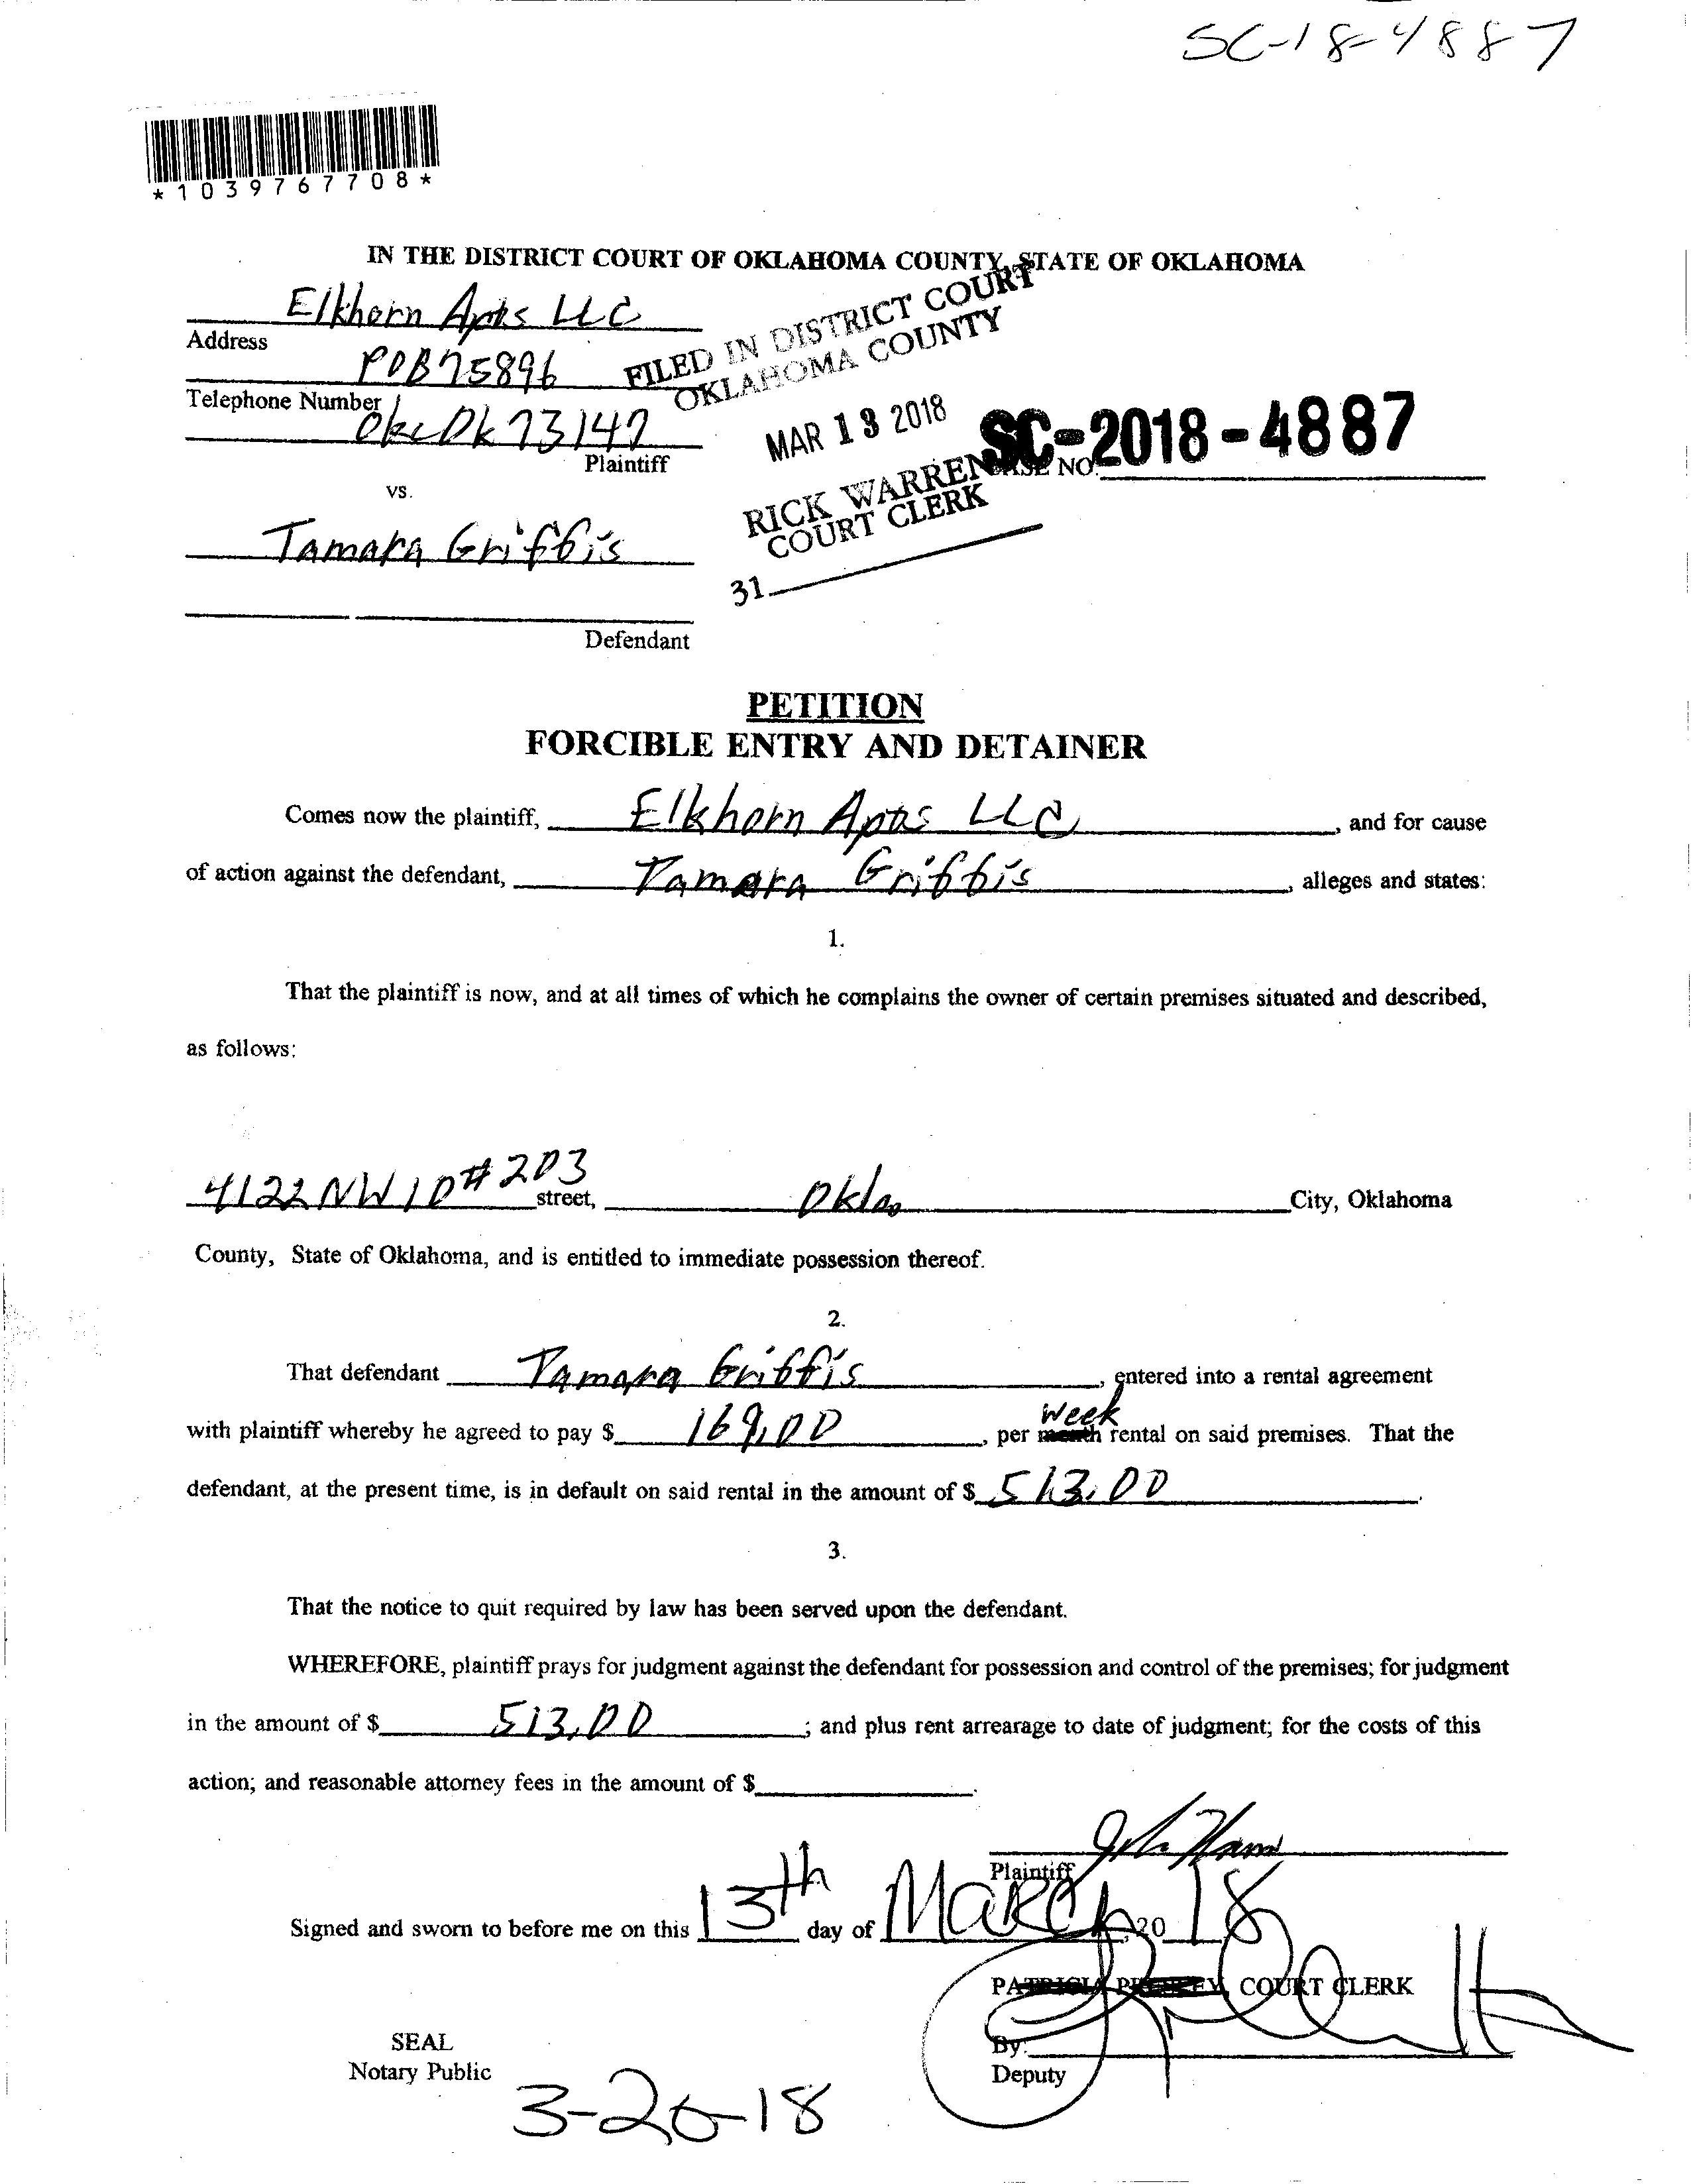 SC-18-4887
*1039767708*
IN THE DISTRICT COURT OF OKLAHOMA COUNTY, STATE OF OKLAHOMA
Elkhorn Apts LLC
Address
POB 75896
Telephone Number
Okc Ok 73147
Plaintiff
FILED IN DISTRICT COURT
OKLAHOMA COUNTY
MAR 13 2018
RICK WARREN
COURT CLERK
31
CASE NO. SC-2018-4887
vs.
Tamara Griffis
Defendant
PETITION
FORCIBLE ENTRY AND DETAINER
Comes now the plaintiff, Elkhorn Apts LLC, and for cause
of action against the defendant, Tamara Griffis, alleges and states:
1.
That the plaintiff is now, and at all times of which he complains the owner of certain premises situated and described,
as follows:
4122 NW 10 #203 street, Okla City, Oklahoma
County, State of Oklahoma, and is entitled to immediate possession thereof.
2.
That defendant Tamara Griffis, entered into a rental agreement
with plaintiff whereby he agreed to pay $ 169.00, per month week rental on said premises. That the
defendant, at the present time, is in default on said rental in the amount of $ 513.00.
3.
That the notice to quit required by law has been served upon the defendant.
WHEREFORE, plaintiff prays for judgment against the defendant for possession and control of the premises; for judgment
in the amount of $ 513.00; and plus rent arrearage to date of judgment; for the costs of this
action; and reasonable attorney fees in the amount of $
Plaintiff
Signed and sworn to before me on this 13th day of March, 2018
PATRICIA PRESLEY, COURT CLERK
SEAL
Notary Public
By:
Deputy
3-26-18